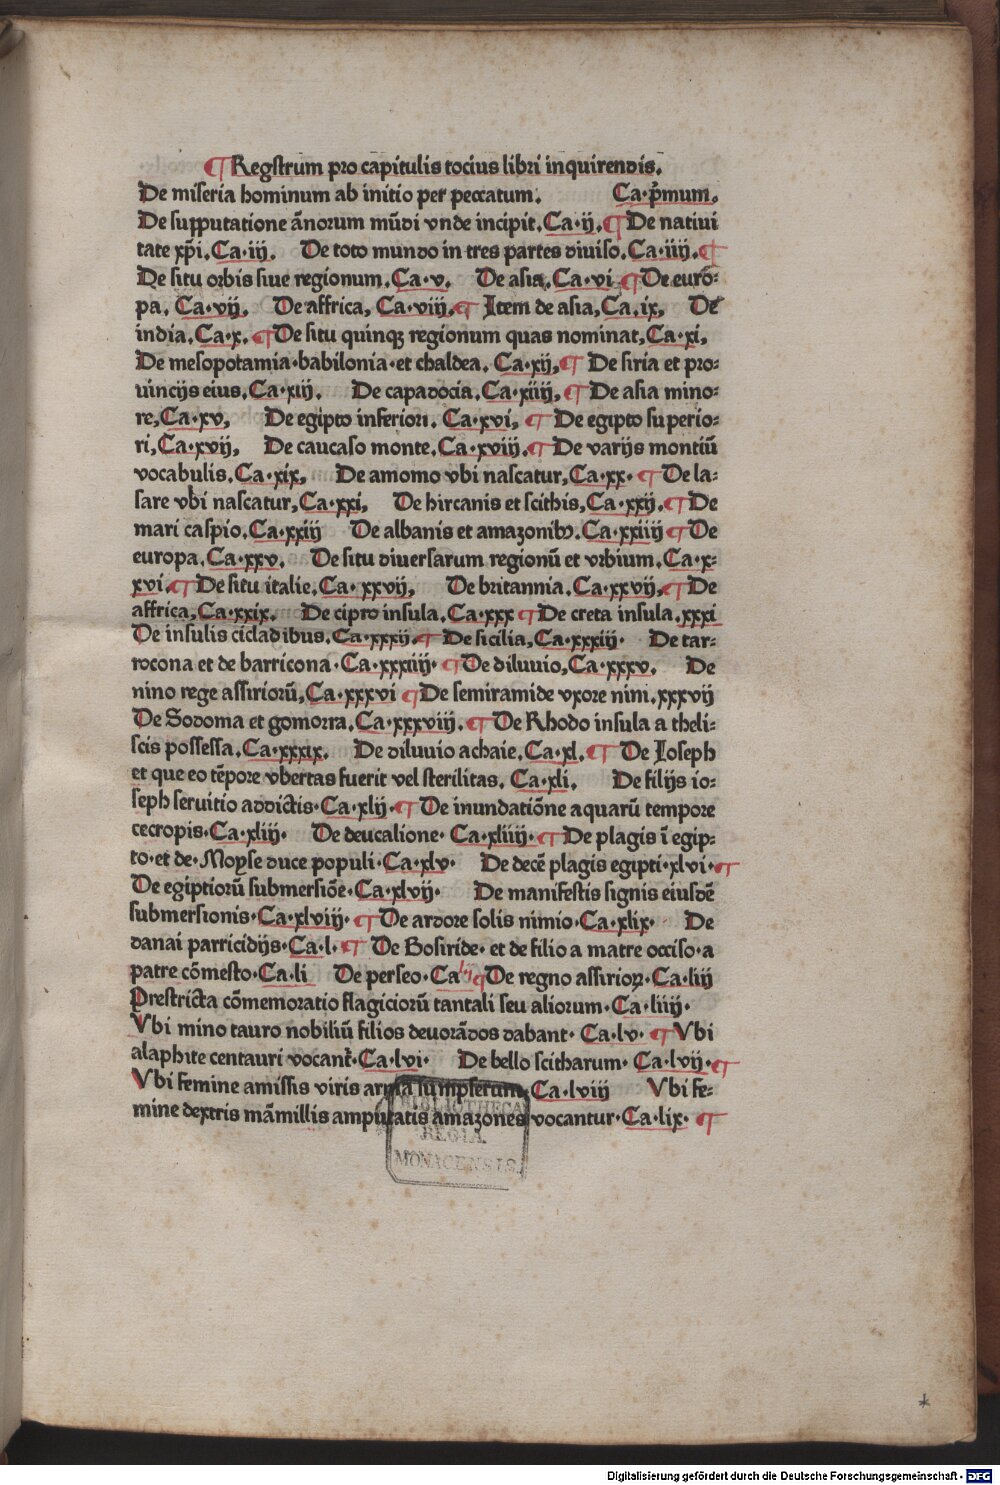 ¶ Regstrum pro capitulis tocius libri inquirendis.
De miseria hominum ab initio per peccatum. Ca·p̄mum.
De supputatione ãnorum mũdi vnde incipit. Ca·ij. ¶ De natiui
tate xp̄i. Ca·iij. De toto mundo in tres partes diuiso. Ca·iiij. ¶
De situ orbis siue regionum. Ca·v. De asia. Ca·vi ¶ De euro⸗
pa. Ca·vij. De affrica, Ca·viij. ¶ Item de asia, Ca·ix, De
india. Ca·x. ¶ De situ quinqꝫ regionum quas nominat, Ca·xi,
De mesopotamia·babilonia·et chaldea. Ca·xij, ¶ De siria et pro⸗
uincijs eius. Ca·xiij. De capadocia. Ca·xiiij, ¶ De asia mino⸗
re, Ca·xv, De egipto inferiori. Ca·xvi, ¶ De egipto superio⸗
ri, Ca·xvij, De caucaso monte. Ca·xviij. ¶ De varijs montiũ
vocabulis. Ca·xix, De amomo vbi nascatur, Ca·xx· ¶ De la⸗
sare vbi nascatur, Ca·xxi, De hircanis et scithis, Ca·xxij. ¶ De
mari caspio. Ca·xxiij De albanis et amazonibꝰ. Ca·xxiiij ¶ De
europa. Ca·xxv. De situ diuersarum regionũ et vrbium. Ca·x⸗
xvi. ¶ De situ italie. Ca·xxvij, De britannia. Ca·xxvij, ¶ De
affrica, Ca·xxix. De cipro insula. Ca·xxx ¶ De creta insula. xxxi
De insulis cicladibus. Ca·xxxij. ¶ De sicilia, Ca·xxxiij· De tar⸗
rocona et de barricona·Ca·xxxiiij· ¶ De diluuio, Ca·xxxv. De
nino rege assiriorũ, Ca·xxxvi ¶ De semiramide vxore nini. xxxvij
De Sodoma et gomorra. Ca·xxxviij. ¶ De Rhodo insula a theli⸗
scis possessa. Ca·xxxix. De diluuio achaie. Ca·xl. ¶ De Ioseph
et que eo tẽpore vbertas fuerit vel sterilitas. Ca·xli. De filijs io⸗
seph seruitio addictis·Ca·xlij·¶ De inundatiõne aquarũ tempore
cecropis·Ca·xliij· De deucalione· Ca·xliiij·¶ De plagis ĩ egip⸗
to·et de·Moyse duce populi·Ca·xlv· De decẽ plagis egipti·xlvi·¶
De egiptiorũ submersiõe·Ca·xlvij· De manifestis signis eiusdẽ
submersionis·Ca·xlviij· ¶ De ardore solis nimio·Ca·xlix· De
danai parricidijs·Ca·l·¶ De Bosiride· et de filio a matre occiso·a
patre cõmesto·Ca·li De perseo·Ca lij ¶ De regno assirioꝝ·Ca·liij
Prestricta cõmemoratio flagiciorũ tantali seu aliorum·Ca·liiij·
Vbi mino tauro nobiliũ filios deuorãdos dabant· Ca·lv· ¶ Vbi
alaphite centauri vocant̃·Ca·lvi· De bello scitharum· Ca·lvij·¶
Vbi femine amissis viris arma sumpserunt, Ca·lviij Vbi fe⸗
mine dextris mãmillis amputatis amazones vocantur·Ca·lix· ¶
BIBLIOTHECA
REGIA
MONACENSIS.
Digitalisierung gefördert durch die Deutsche Forschungsgemeinschaft - DFG